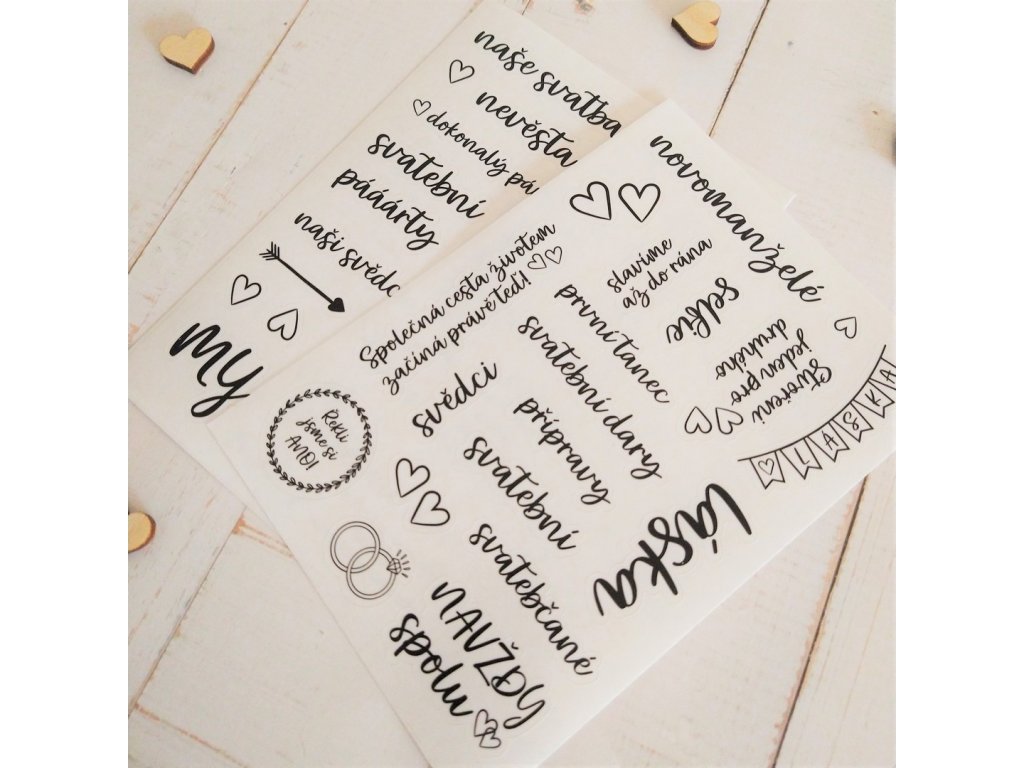 naše svatba
nevěsta
dokonalý pá
svatební
pááárty
naši svědc
MY
novomanželé
slavíme
až do rána
selfie
Stvořeni
jeden pro
druhého
LÁSKA
Společná cesta životem
začíná právě teď!
první tanec
svatební dary
přípravy
svědci
svatební
svatebčané
Řekli
jsme si
ANO!
láska
NAVŽDY
spolu